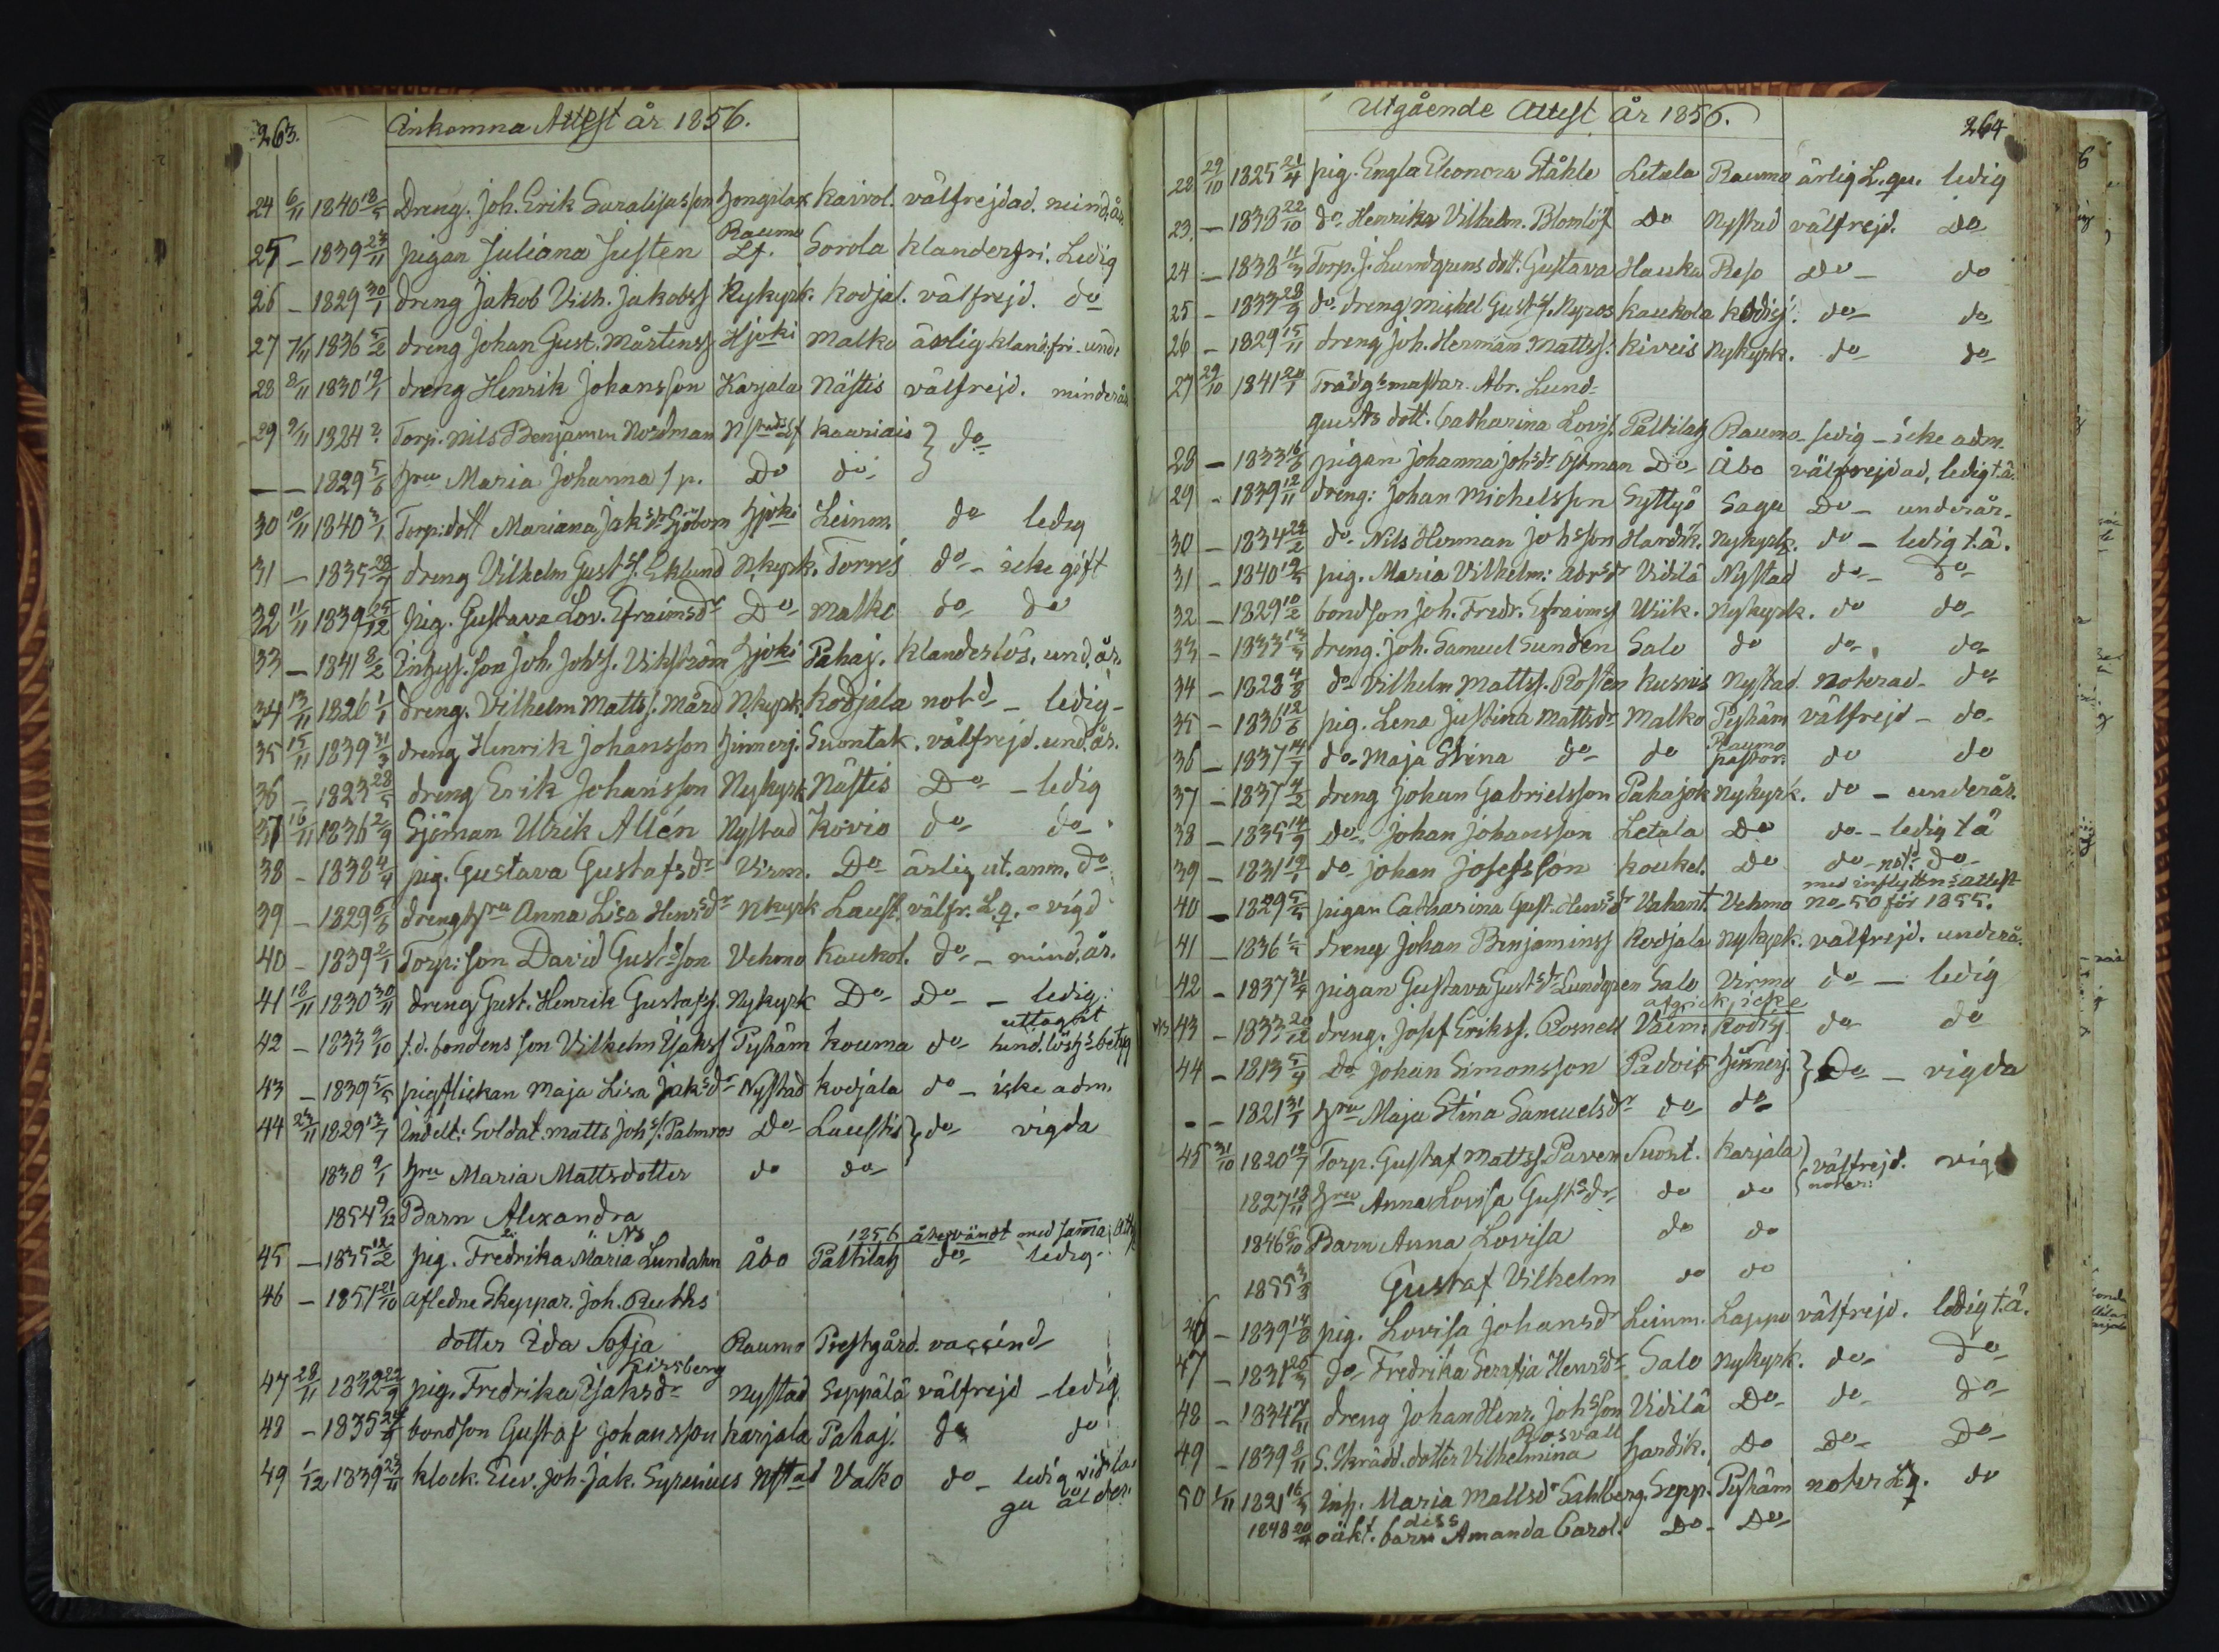 263.
Ankomna Attest år 1856.
24 6/11 1840 18/5 Dreng. Joh. Erik Suralijasson Hongilax Kaivol. välfrejdad. mind.år.
25 – 1839 23/11 pigan Juliana Justen Raumo Lf. Sorola klanderfri. Ledig
26 – 1829 30/1 dreng Jakob Vilh. Jakobss Nykyrk. Kodjal. välfrejd. do
27 7/11 1836 5/2 dreng Johan Gust. Mårtenss Hjoki Malko ärlig kland.fri. und.
28 8/11 1830 19/1 dreng Henrik Johansson Karjala Nästis välfrejd. minderår.
29 9/11 1824 ?. Torp. Nils Benjamin Nordman Nstads Lf Kauriais } do
– – 1829 5/6 Hru Maria Johanna /p. Do do
30 10/11 1840 3/1 Torp: dott Mariana Jaksdr Sjöbom Hjoki Leinm. do ledig
31 – 1835 28/7 dreng Vilhelm Gust.s. Eklund Nkyrk. Torres do – icke gift
32 11/11 1839 25/12 Pig. Gustava Lov. Efraimsdr Do Malko do do
33 – 1841 8/2 Inhys. son Joh. Johss. Vikström Hjoki Pahaj. klanderlös. und.år.
34 13/11 1826 1/1 dreng. Vilhelm Matts s. Mård Nkyrk. Kodjala notd – ledig –
35 15/11 1839 31/3 dreng Henrik Johansson Hinnerj. Suontak. välfrejd. und.år.
36 – 1823 28/5 dreng Erik Johansson Nykyrk Nästis Do – ledig
37 16/11 1836 2/9 Sjöman Ulrik Allén Nystad Kovio do do
38 – 1838 4/4 pig. Gustava Gustafsdr Virm. Do ärlig ut. anm. do
39 – 1829 6/6 drengshru Anna Lisa Henrsdr Nkyrk Laust. välfr. L.q. – vigd
40 – 1839 2/1 Torp: son David Gustsson Vehmo Kaukol. do – mind.år.
41 18/11 1830 30/11 dreng Gust. Henrik Gustafs. Nykyrk Do Do – ledig.
42 – 1833 9/10 f.d. bondens son Vilhelm Isakss Pyhäm Kouma do uttagit hind.lösh.s betyg
43 – 1839 5/5 pigflickan Maja Lisa Jaksdr Nystad Kodjala do – icke adm.
44 23/11 1829 13/7 Indelt: Soldat. Matts Johs. Palmros Do Laustis } do vigda
1830 9/1 Hru Maria Mattsdotter do do
1854 9/12 Barn Alexandra
1856 återvändt med samma att.
45 – 1835 12/2 pig. Fredrika Maria Lundahn Åbo Paltilax do ledig –
46 – 1851 21/10 afledne Skeppar. Joh. Ruths
dotter Ida Sofja Raumo Prestgård. vaccind
47 28/11 1832 22/9 pig. Fredrika Isaksdr Kirsberg Nystad Seppälä välfrejd – ledig
48 – 1835 24/9 bondson Gustaf Johansson Karjala Pahaj. do do
49 1/12 1839 23/11 klock. Elev. Joh. Jak. Syrenius Nstad Valko do – ledig vid laga ålder.
Utgående Attest År 1856.
264
22 29/10 1825 21/4 pig. Engla Eleonora Ståhle Letala Raumo ärlig L.qu. ledig
23. – 1838 22/10 do Henrika Vilhelm. Blomlöf Do Nystad välfrejd. do
24 – 1838 11/3 Torp. J. Lundgrens dott. Gustava Hauka Reso do – do
25 – 1833 28/9 do dreng Mickel Gusts. Nyros Kaukola Kodisj. do do
26 – 1829 15/11 dreng Joh. Herman Mattss. Kiveis Nykyrk. do do
27 29/10 1841 20/1 Trädgsmästar. Abr. Lund-
qvists dott. Catharina Lovis. Paltilax Raumo – ledig – icke adm.
28 – 1833 16/6 pigan Johanna Johsdr Öfman Do Åbo välfrejdad, ledig t.ä.
29 – 1839 12/11 dreng: Johan Michelsson Syttyö Sagu Do – underår.
30 – 1834 22/2 do Nils Herman Johsson Hardik. Nykyrk. do – ledig t.ä.
31 – 1840 19/5 pig. Maria Vilhelm: Abrsdr Vidilä Nystad do – do
32 – 1829 10/2 bondson Joh. Fredr. Efraims Wiik. Nykyrk. do do
33 – 1833 13/3 dreng. Joh. Samuel Sunden Salo do do do
34 – 1828 4/8 do Vilhelm Mattss. Rosten Kusnis Nystad noterad do
35 – 1836 12/6 pig. Lena Justina Mattsdr Malko Pyhäm välfrejd – do
36 – 1837 14/7 do Maja Stina do do Raumo pastor. do do
37 – 1837 4/2 dreng Johan Gabrielsson Pahajok Nykyrk. do – underår.
38 – 1835 14/9 do Johan Johansson Letala Do do – ledig t.ä
39 – 1831 19/1 do Johan Josefsson Koukel. Do do notd do
40 – 1829 5/5 pigan Catharina Gust. Henrsdr Vahant. Vehmo med inflyttn.s attest no 50 för 1855.
41 – 1836 1/5 dreng Johan Benjaminss Kodjala Nykyrk. välfrejd. underå.
42 – 1837 31/7 pigan Gustava Gustsdr Lundgren Salo Virmo do – ledig
afgick icke
43 – 1833 20/12 dreng. Josef Erikss. Rosnell Vaim. Kodisj. do do
44 – 1813 5/9 Do Johan Simonsson Padvis Hinnerj. } Do – vigda
– – 1821 31/7 Hru Maja Stina Samuelsdr do do
45 31/10 1820 12/7 Torp. Gustaf Mattss. Paven Suont. Karjala } välfrejd. vigd
1827 12/11 Hru Anna Lovisa Gustsdr do do noter:
1846 5/10 Barn Anna Lovisa do do
1855 3/3 Gustaf Vilhelm do do
46 – 1839 14/8 pig. Lovisa Johansdr Leinm. Lappo välfrejd. ledig t.ä.
47 – 1831 20/3 do Fredrika Serafia Henrsdr Salo Nykyrk. do do
48 – 1834 7/11 dreng Johan Henr. Johsson Vidilä Do do do
49 – 1839 2/11 S. Skrädd. dotter Vilhelmina Rosvall Hardik. Do Do Do
50 1/11 1821 16/3 Inh. Maria Mattsdr Sahlberg. Sepp. Pyhäm noter L.q. do
1848 20/4 oäkt. diss barn Amanda Carol. Do Do